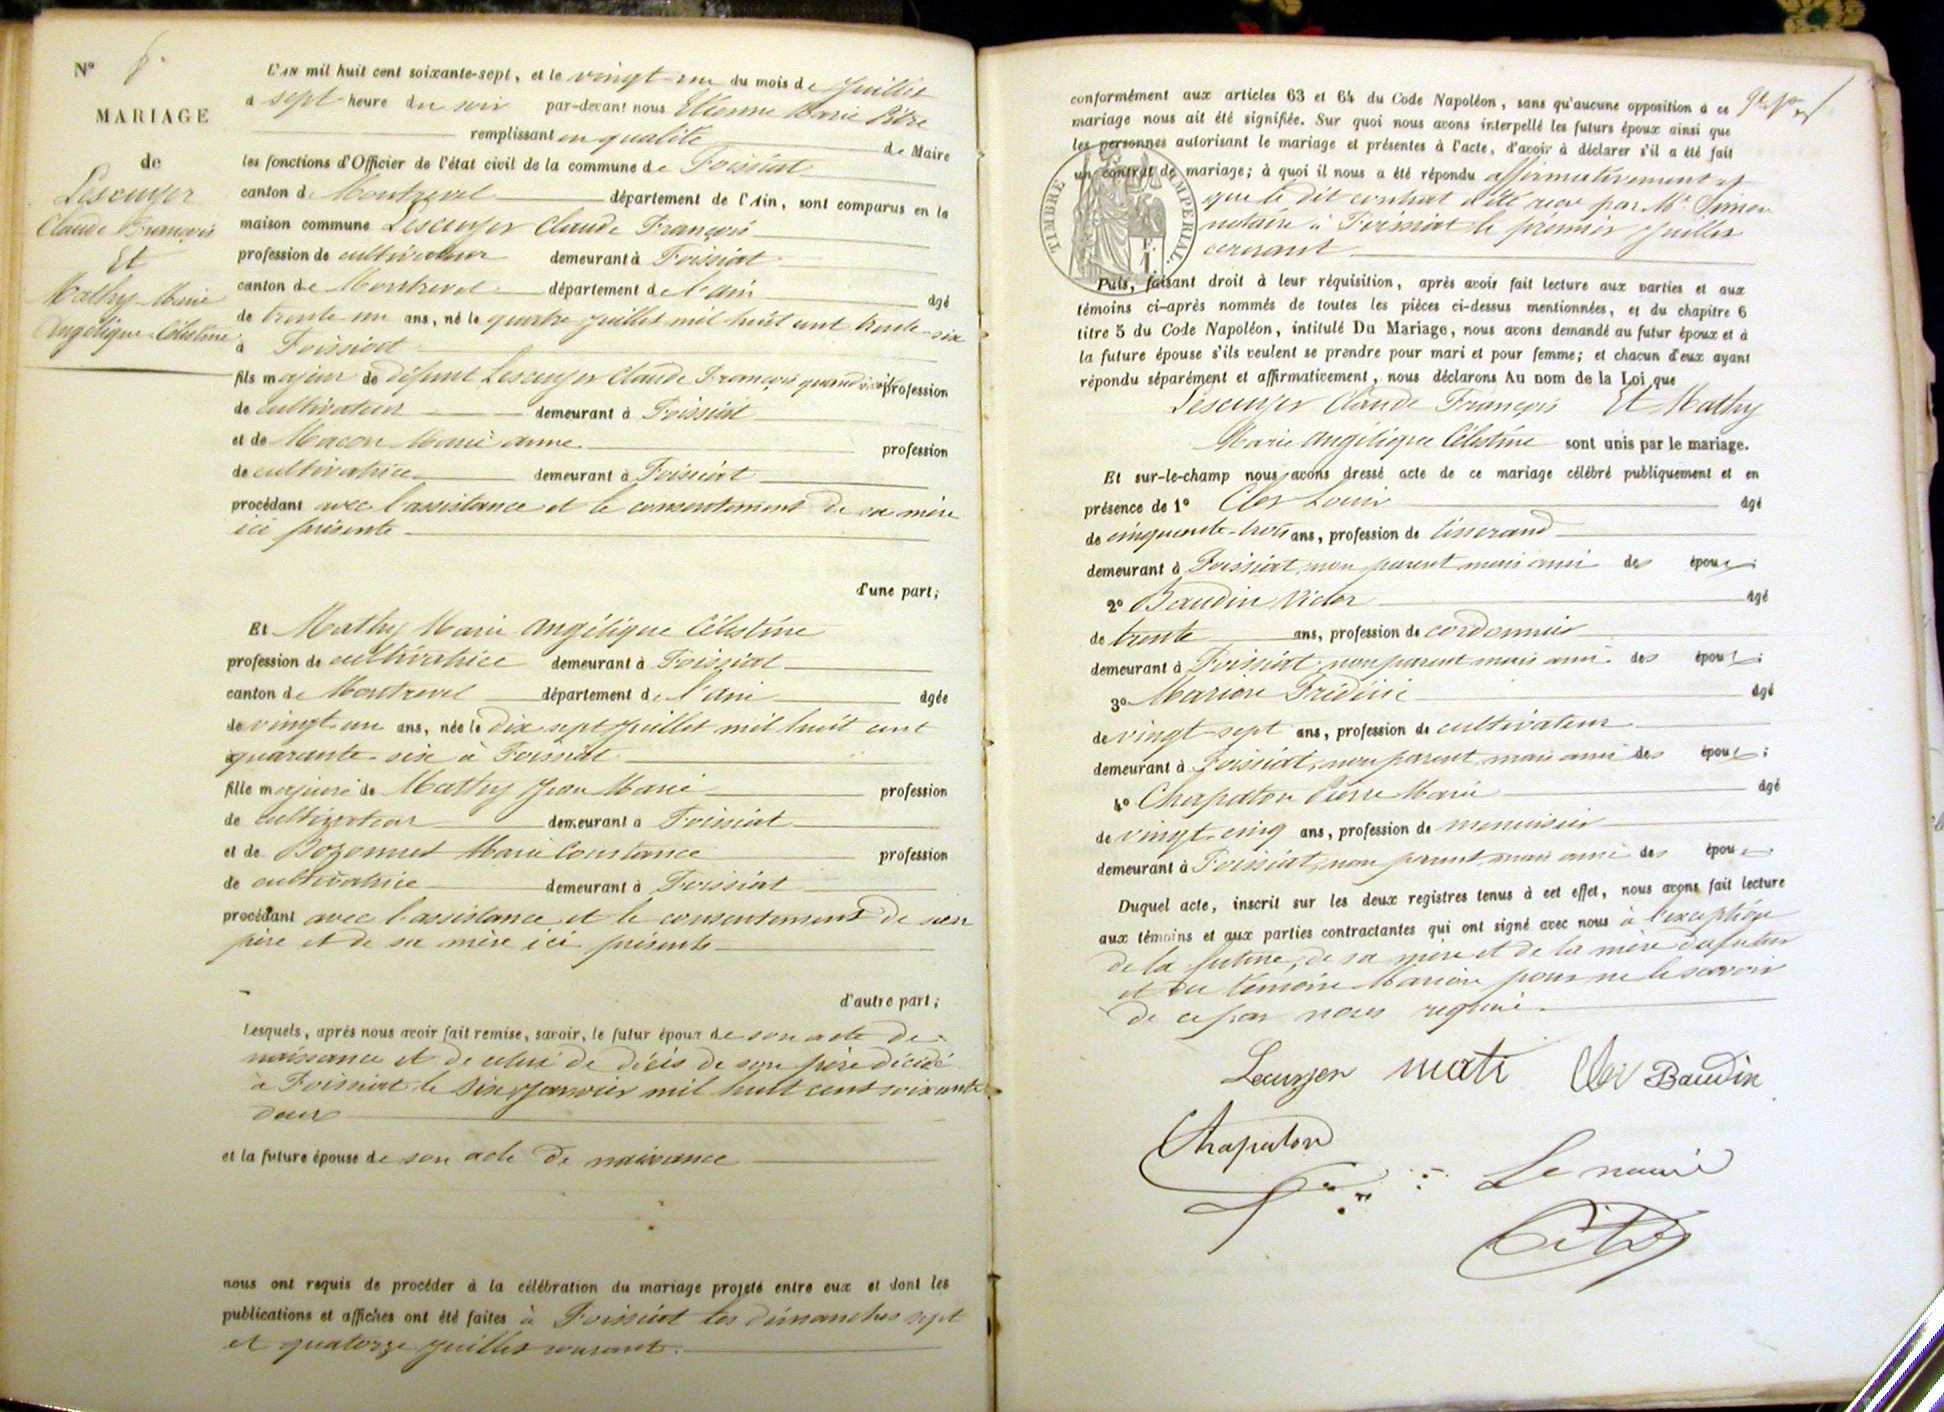 N° 8
MARIAGE
de
Lescuyer
Claude François
Et
Mathy Marie
Angélique Célestine
L'AN mil huit cent soixante-sept, et le vingt un du mois de juillet
à sept heure du soir par-devant nous Etienne Marie
remplissant en qualité de Maire
les fonctions d'Officier de l'état civil de la commune de Foissiat
canton de Montrevel département de l'Ain, sont comparus en la
maison commune Lescuyer Claude François
profession de cultivateur demeurant à Foissiat
canton de Montrevel département de l'ain âgé
de trente un ans, né le quatre juillet mil huit cent trente-six
à Foissiat
fils majeur de défunt Lescuyer Claude François quand vivait profession
de cultivateur demeurant à Foissiat
et de Macon Marie anne profession
de cultivatrice demeurant à Foissiat
procédant avec l'assistance et le consentement de sa mère
ici présente
d'une part;
Et Mathy Marie Angélique Célestine
profession de cultivatrice demeurant à Foissiat
canton de Montrevel département de l'ain âgée
de vingt un ans, née le dix sept juillet mil huit cent
quarante-six à Foissiat
fille majeure de Mathy Jean Marie profession
de cultivateur demeurant à Foissiat
et de Bozonnet Marie Constance profession
de cultivatrice demeurant à Foissiat
procédant avec l'assistance et le consentement de son
père et de sa mère ici présents
d'autre part;
Lesquels, après nous avoir fait remise, savoir, le futur époux de son acte de
naissance et de celui de décès de son père décédé
à Foissiat le six janvier mil huit cent soixante
deux
et la future épouse de son acte de naissance
nous ont requis de procéder à la célébration du mariage projeté entre eux et dont les
publications et affiches ont été faites à Foissiat les dimanches sept
et quatorze juillet courant.
conformément aux articles 63 et 64 du Code Napoléon, sans qu'aucune opposition à ce
mariage nous ait été signifiée. Sur quoi nous avons interpellé les futurs époux ainsi que
les personnes autorisant le mariage et présentes à l'acte, d'avoir à déclarer s'il a été fait
un contrat de mariage; à quoi il nous a été répondu affirmativement et
que le dit contrat a été reçu par Mr Simon
notaire à Foissiat le premier juillet
courant
TIMBRE IMPERIAL
Puis, faisant droit à leur réquisition, après avoir fait lecture aux parties et aux
témoins ci-après nommés de toutes les pièces ci-dessus mentionnées, et du chapitre 6
titre 5 du Code Napoléon, intitulé Du Mariage, nous avons demandé au futur époux et à
la future épouse s'ils veulent se prendre pour mari et pour femme; et chacun d'eux ayant
répondu séparément et affirmativement, nous déclarons Au nom de la Loi que
Lescuyer Claude François Et Mathy
Marie Angélique Célestine sont unis par le mariage.
Et sur-le-champ nous avons dressé acte de ce mariage célébré publiquement et en
présence de 1° Cler Louis âgé
de cinquante-trois ans, profession de tisserand
demeurant à Foissiat, non parent mais ami des époux;
2° Baudin Victor âgé
de trente ans, profession de cordonnier
demeurant à Foissiat, non parent mais ami des époux;
3° Marion Frédéric âgé
de vingt-sept ans, profession de cultivateur
demeurant à Foissiat, non parent mais ami des époux;
4° Chapaton Pierre Marie âgé
de vingt-cinq ans, profession de menuisier
demeurant à Foissiat, non parent mais ami des époux
Duquel acte, inscrit sur les deux registres tenus à cet effet, nous avons fait lecture
aux témoins et aux parties contractantes qui ont signé avec nous à l'exception
de la future, de sa mère et de la mère du futur
et du témoin Marion pour ne le savoir
de ce par nous requis.
Lecuyer mati Cler Baudin
Chapaton
Le maire